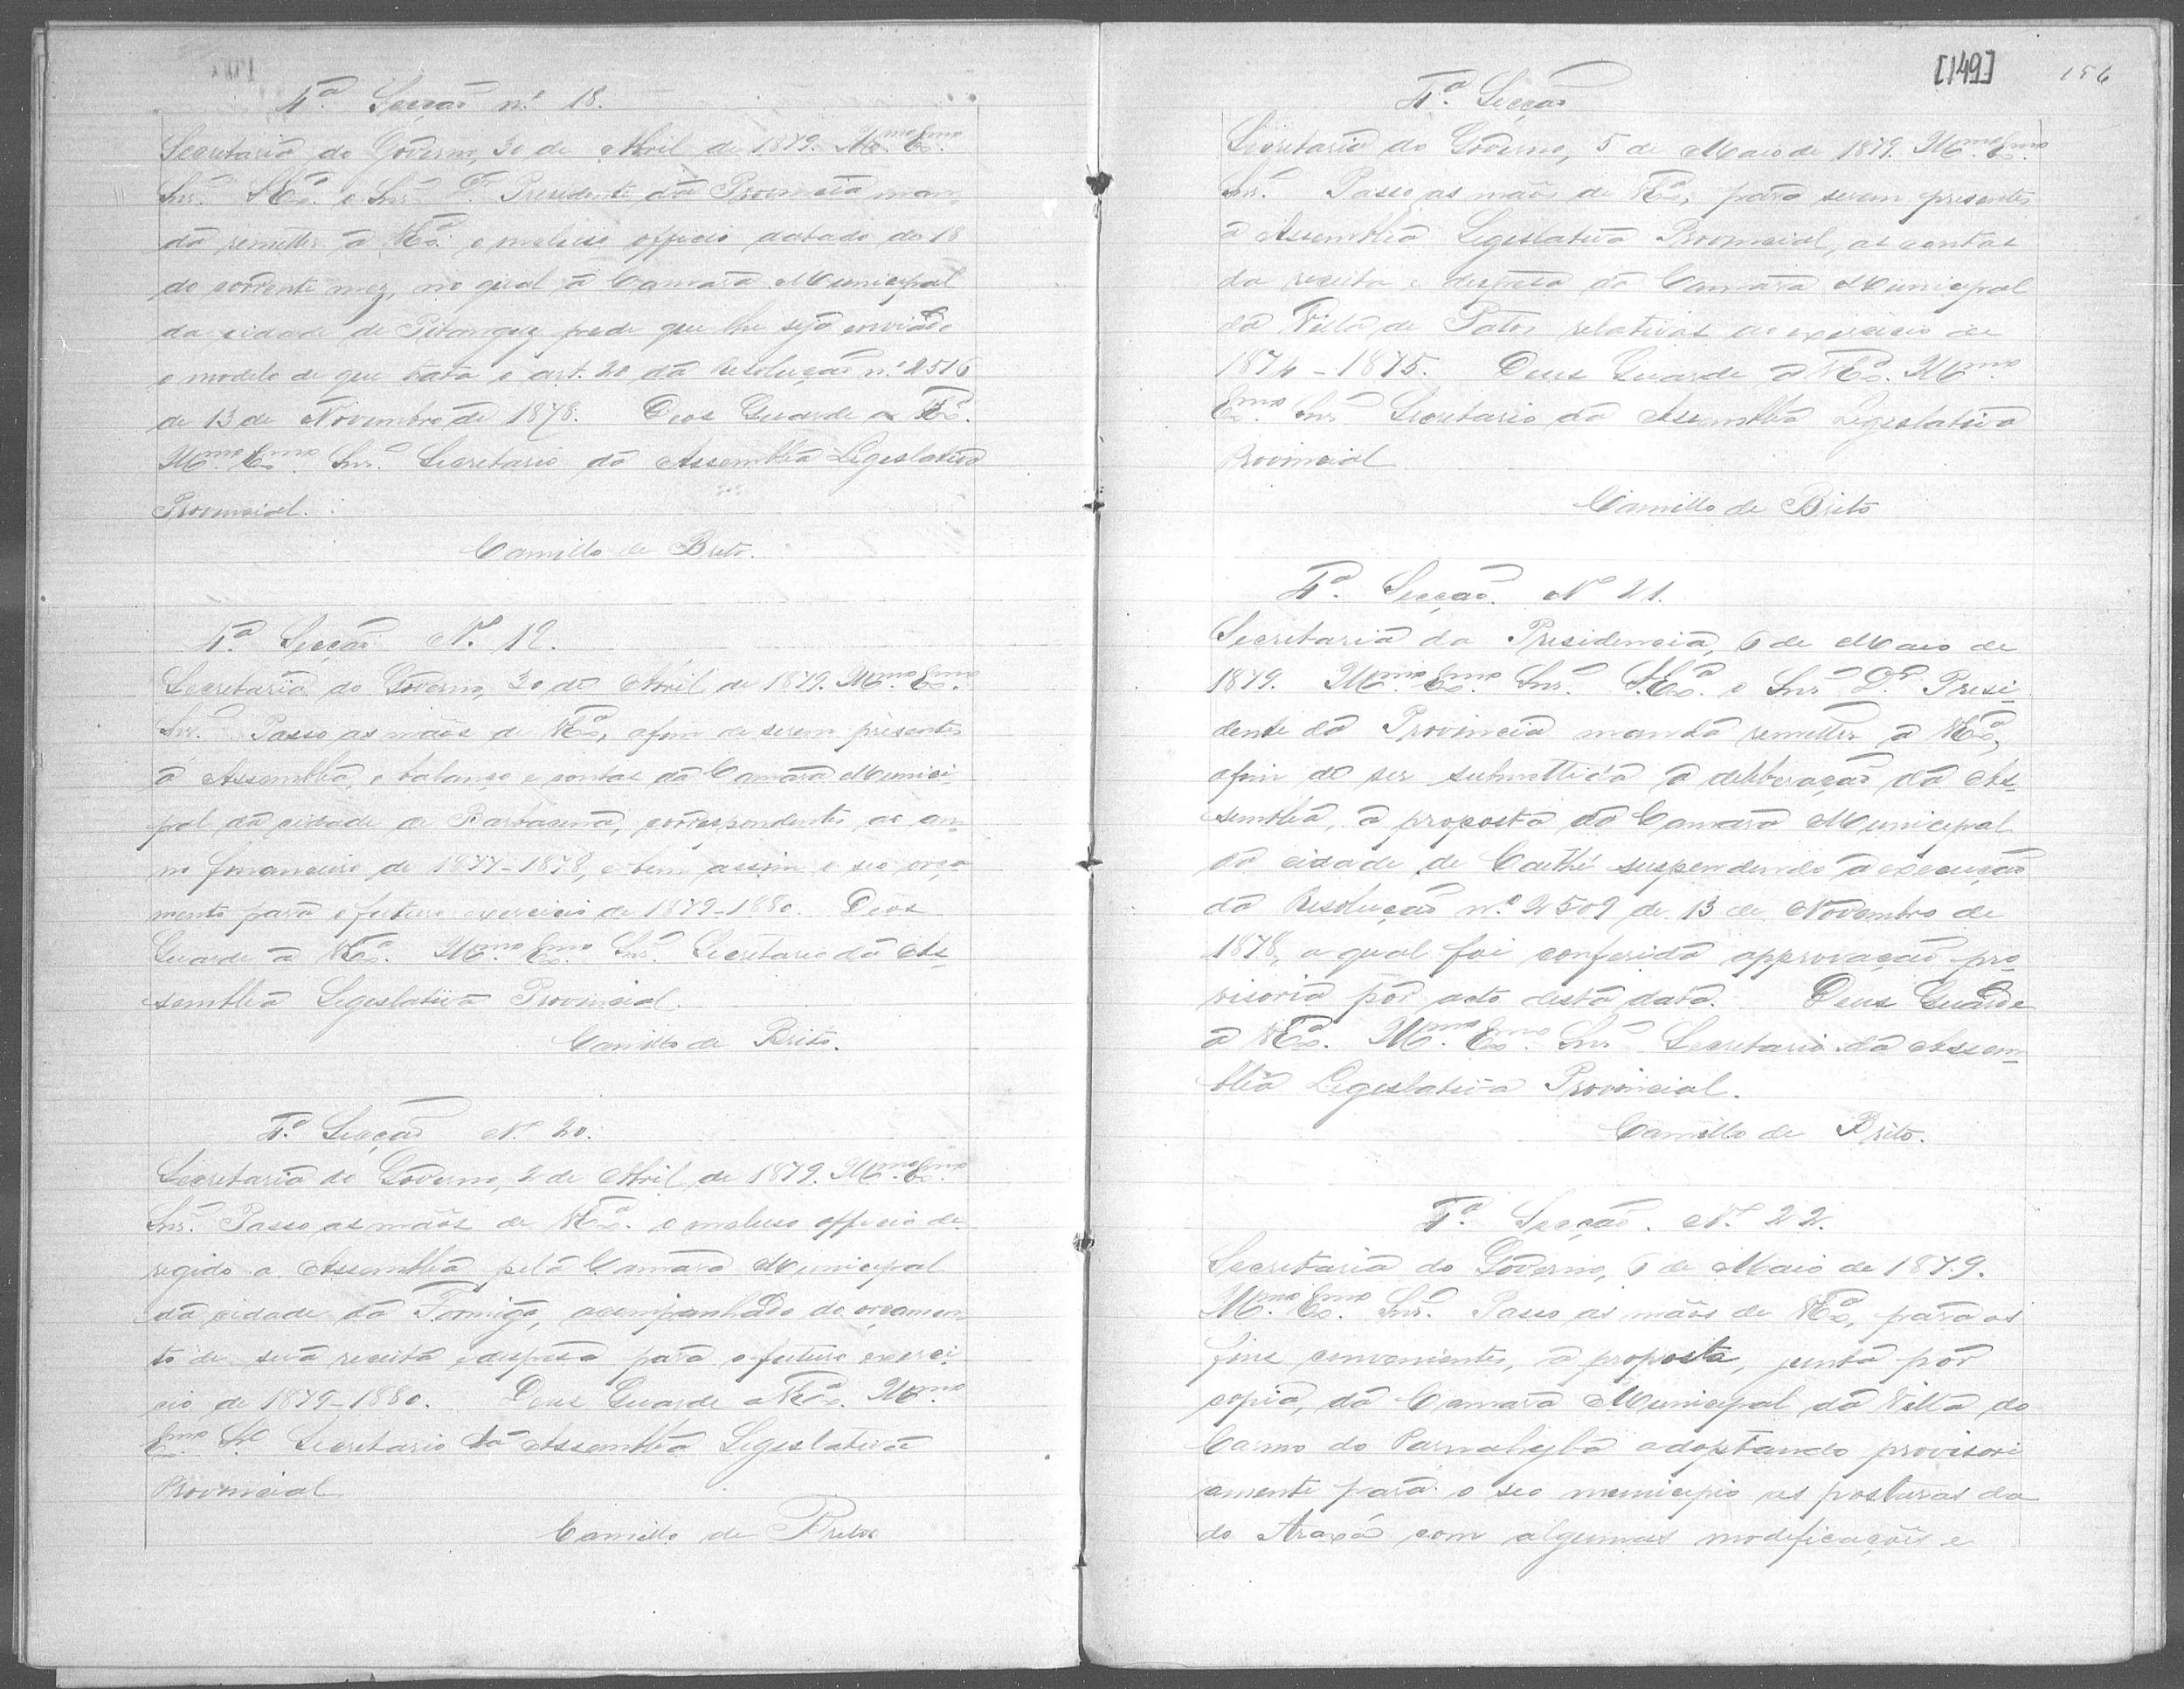 4ª Secção n.º 18.
Secretaria do Governo, 30 de Abril de 1879. Illmo. Exmo.
Snr. S. Exª. o Snr. Dr. Presidente da Provincia man-
da remetter a V. Exª. o incluso officio datado de 18
do corrente mez, no qual a Camara Municipal
da cidade de Pitanguy pede que lhe seja enviado
o modelo de que trata o art. 20 da Resolução n.º 2516
de 13 de Novembro de 1878. Deos Guarde a V. Exª.
Illmo. Exmo. Snr. Secretario da Assembléa Legislativa
Provincial.
Camillo de Brito.
4ª Secção N.º 19.
Secretaria do Governo, 30 de Abril de 1879. Illmo. Exmo.
Snr. Passo as mãos de V. Exª, afim de serem presentes
á Assembléa, o balanço e contas da Camara Munici-
pal da cidade de Barbacena, correspondentes ao an-
no financeiro de 1877-1878, e bem assim o seo orça
mento para o futuro exercicio de 1879-1880. Deos
Guarde a V. Exª. Illmo. Exmo. Snr. Secretario da As-
sembléa Legislativa Provincial.
Camillo de Brito.
4ª Secção N.º 20.
Secretaria do Governo, 2 de Abril de 1879. Illmo. Exmo.
Snr. Passo as mãos de V. Exª. o incluso officio de-
regido a Assembléa pela Camara Municipal
da cidade da Formiga, acompanhado do orçamen-
to de sua receita e despesa para o futuro exerci-
cio de 1879-1880. Deus Guarde a V. Exª. Illmo.
Exmo. Sr. Secretario da Assembléa Legislativa
Provincial
Camillo de Brito
[149] 156
4ª. Secção
Secretaria do Governo, 5 de Maio de 1879. Illmo. Exmo.
Snr. Passo as mãos de V. Exª, para serem presentes
á Assembléa Legislativa Provincial, as contas
da receita e despesa da Camara Municipal
da Villa de Patos relativas ao exercicio de
1874-1875. Deus Guarde a V. Exª. Illmo.
Exmo. Snr. Secretario da Assembléa Legislativa
Provincial
Camillo de Brito
4ª. Secção. N.º 21.
Secretaria da Presidencia, 6 de Maio de
1879. Illmo. Exmo. Snr. S. Exª. o Snr. Dr. Presi-
dente da Provincia manda remetter a V. Exª,
afim de ser submettida a deliberação da As-
sembléa, a proposta da Camara Municipal
da cidade de Caethé suspendendo a execução
da Resolução n.º 2509 de 13 de Novembro de
1878, a qual foi conferida approvação pro
visoria por acto desta data. Deus Guarde
a V. Exª. Illmo. Exmo. Snr. Secretario da Assem-
bléa Legislativa Provincial.
Camillo de Brito.
4ª. Secção. N.º 22.
Secretaria do Governo, 6 de Maio de 1879.
Illmo. Exmo. Snr. Passo as mãos de V. Exª, para os
fins convenientes, a proposta, junta por
copia, da Camara Municipal da Villa do
Carmo do Parnahyba adoptando provisori
amente para o seo municipio as posturas da
do Araxá com algumas modificações e